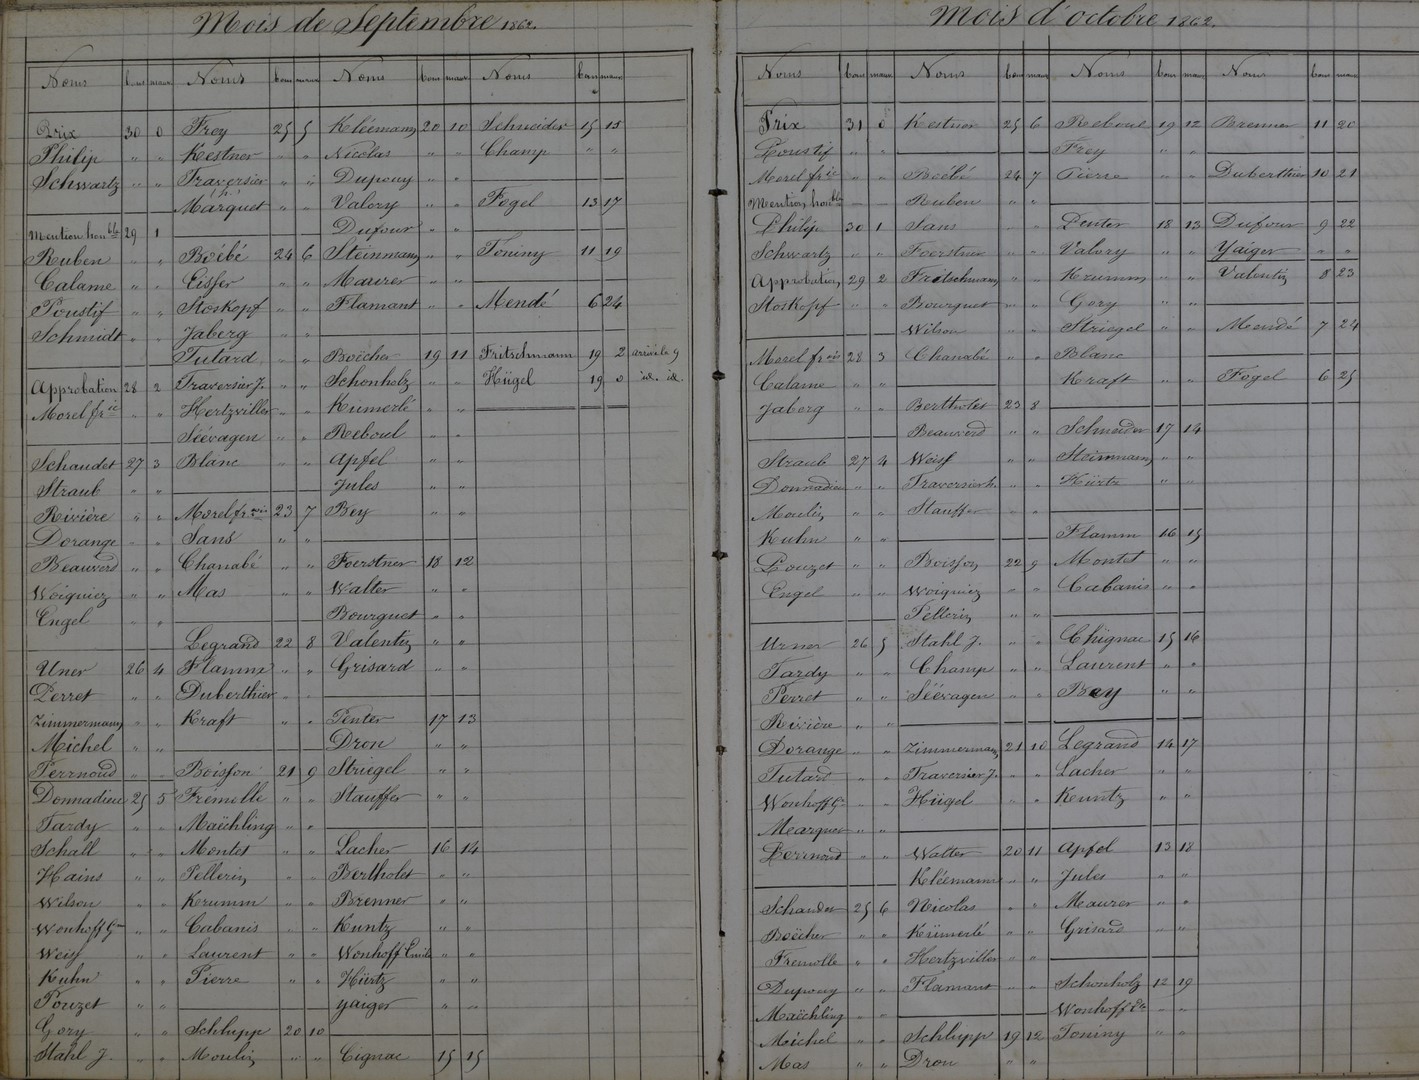 Mois de Septembre 1862.
Noms bons maux Noms bons maux Noms bons maux Noms bons maux
Prix 30 0 Frey 25 5 Kléemann 20 10 Schneider 15 15
Philip " " Kestner " " Nicolas " " Champ " "
Schwartz " " Traversier " " Dupouy " "
Marquet " " Valory " " Fogel 13 17
Mention honble 29 1 Dufour " "
Ruben " " Boëbé 24 6 Steinmann " " Toniny 11 19
Calame " " Eisser " " Maurer " "
Poustif " " Stoskopf " " Flamant " " Mendé 6 24
Schmidt " " Jaberg " "
Tutard " " Boëcher 19 11 Fritschmann 19 2 arrivé le 9
Approbation 28 2 Traversier J. " " Schonholz " " Hügel 19 0 id. id.
Morel fr " " Hertzviller " " Kümerlé " "
Séévagen " " Reboul " "
Schauder 27 3 Blanc " " Apfel " "
Straub " " Jules " "
Rivière " " Morel fr 23 7 Bey " "
Dorange " " Sans " "
Beauverd " " Chanabé " " Foerstner 18 12
Woignier " " Mas " " Walter " "
Engel " " Bourguet " "
Legrand 22 8 Valentin " "
Urner 26 4 Flamm " " Grisard " "
Perret " " Duberthier " "
Zimmermann " " Kraft " " Penter 17 13
Michel " " Dron " "
Perrnoud " " Boisson 21 9 Striegel " "
Donnadieu 25 5 Fremolle " " Stauffer " "
Tardy " " Maëchling " "
Schall " " Montet " " Lacher 16 14
Hains " " Pellerin " " Bertholet " "
Wilson " " Krumm " " Brenner " "
Wonhoff G " " Cabanis " " Kuntz " "
Weiss " " Laurent " " Wonhoff Emile " "
Kuhn " " Pierre " " Hürtz " "
Pouzet " " Yaiger " "
Gory " " Schlupp 20 10
Stahl J. " " Moulin " " Cignac 15 15
Mois d'octobre 1862.
Noms bons maux Noms bons maux Noms bons maux Noms bons maux
Prix 31 0 Kestner 25 6 Reboul 19 12 Brenner 11 20
Poustif " " Frey " "
Morel fr " " Boëbé 24 7 Pierre " " Duberthier 10 21
Mention honble Ruben " "
Philip 30 1 Sans " " Penter 18 13 Dufour 9 22
Schwartz " " Foerstner " " Valory " " Yaiger " "
Approbation 29 2 Fritschmann " " Krumm " " Valentin 8 23
Stoskopf " " Bourguet " " Gory " "
Wilson " " Striegel " " Mendé 7 24
Morel fr 28 3 Chanabé " " Blanc
Calame " " Kraft " " Fogel 6 25
Jaberg " " Bertholet 23 8
Beauverd " " Schneider 17 14
Straub 27 4 Weiss " " Steinmann " "
Donnadieu " " Traversier h. " " Hürtz " "
Moulin " " Stauffer " "
Kuhn " " Flamm 16 15
Pouzet " " Boisson 22 9 Montet " "
Engel " " Woignier " " Cabanis " "
Pellerin " "
Urner 26 5 Stahl J. " " Chignac 15 16
Tardy " " Champ " " Laurent " "
Perret " " Séévagen " " Bey " "
Rivière " "
Dorange " " Zimmermann 21 10 Legrand 14 17
Tutard " " Traversier J. " " Lacher " "
Wonhoff G " " Hügel " " Kuntz " "
Mearquer " "
Perrnoud " " Walter 20 11 Apfel 13 18
Kléemann " " Jules " "
Schauder 25 6 Nicolas " " Maurer " "
Boëcher " " Kümerlé " " Grisard " "
Fremolle " " Hertzviller " "
Dupouy " " Flamant " " Schonholz 12 19
Maëchling " " Wonhoff Em " "
Michel " " Schlupp 19 12 Toniny " "
Mas " " Dron " "